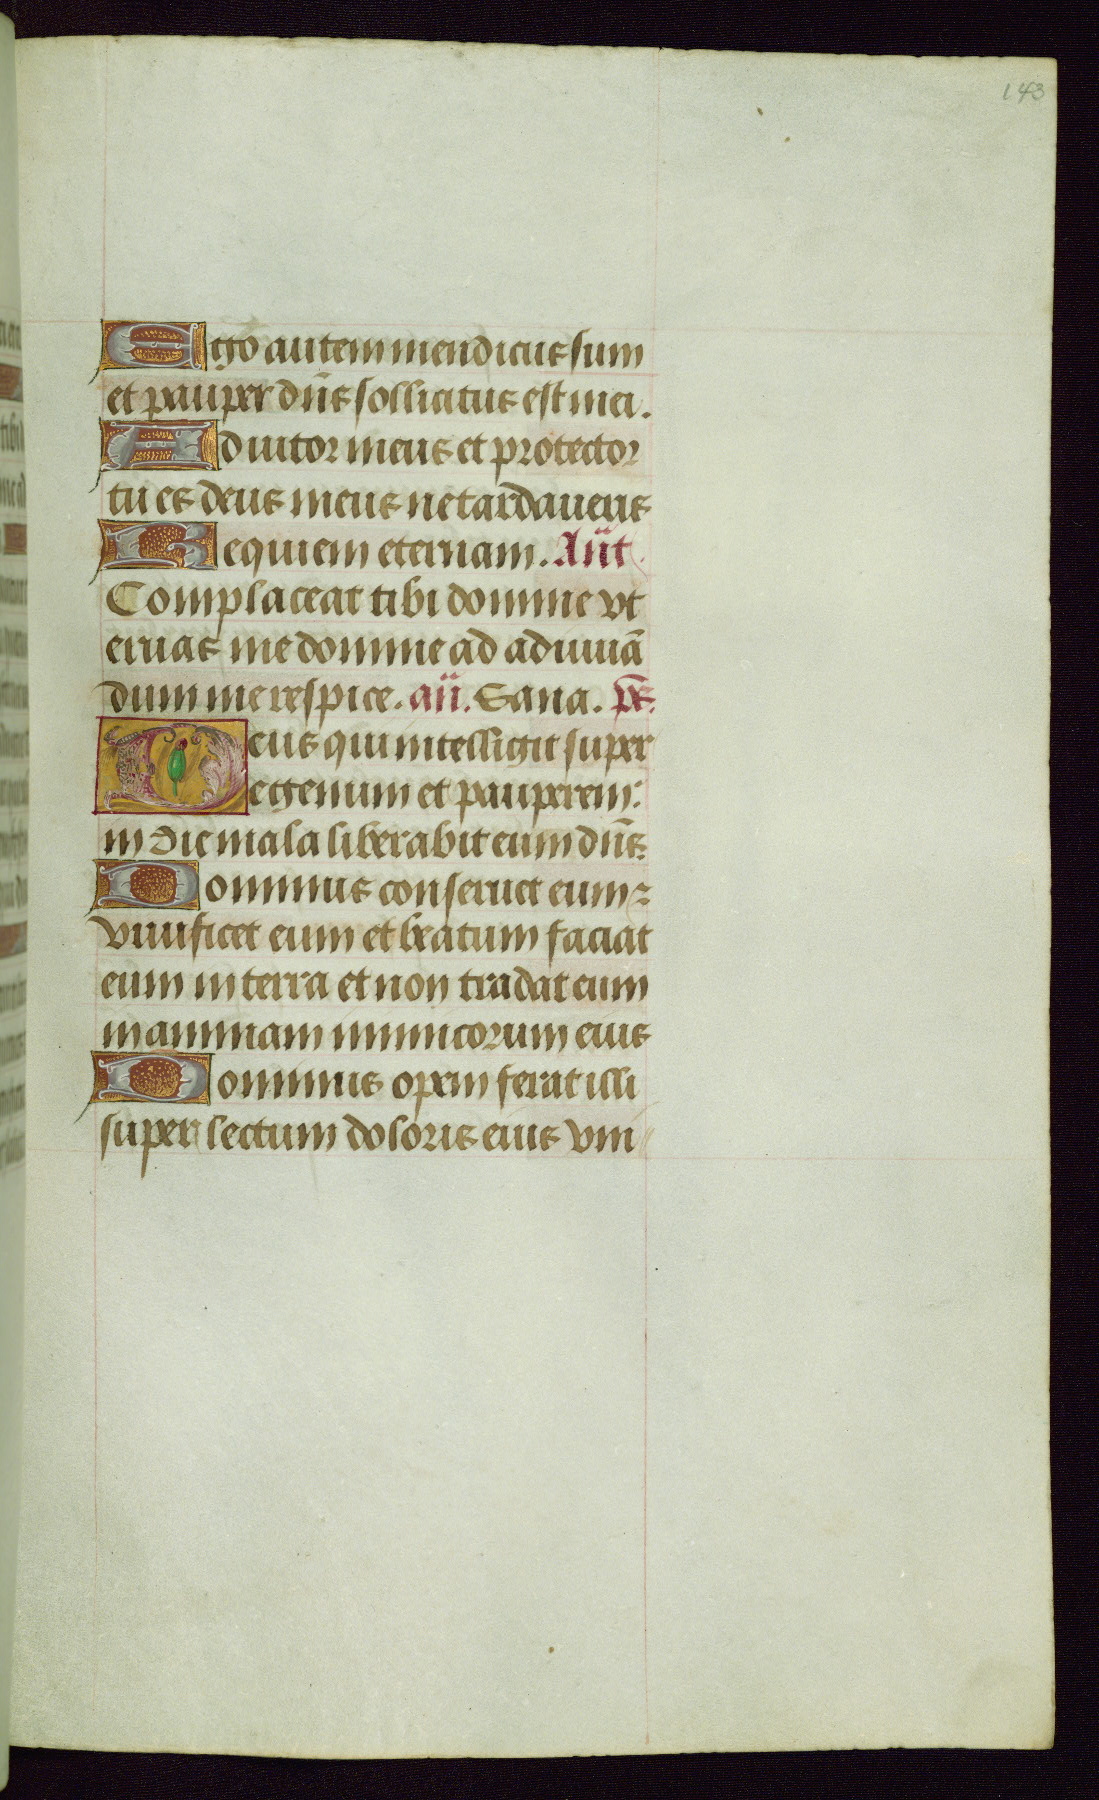 143
Ego autem mendicus sum
et pauper dn̄s sollicitus est mei.
Adiutor meus et protector
tu es deus meus ne tardaueris
Requiem eternam. Añt
Complaceat tibi domine vt
eruas me domine ad adiuuā
dum me respice. añ. Sana. ps̄.
Deus qui intelligit super
egenum et pauperem:
in die mala liberabit eum dn̄s.
Dominus conseruet eum:
viuificet eum et beatum faciat
eum in terra et non tradat eum
in animam inimicorum eius
Dominus opem ferat illi
super lectum doloris eius vni